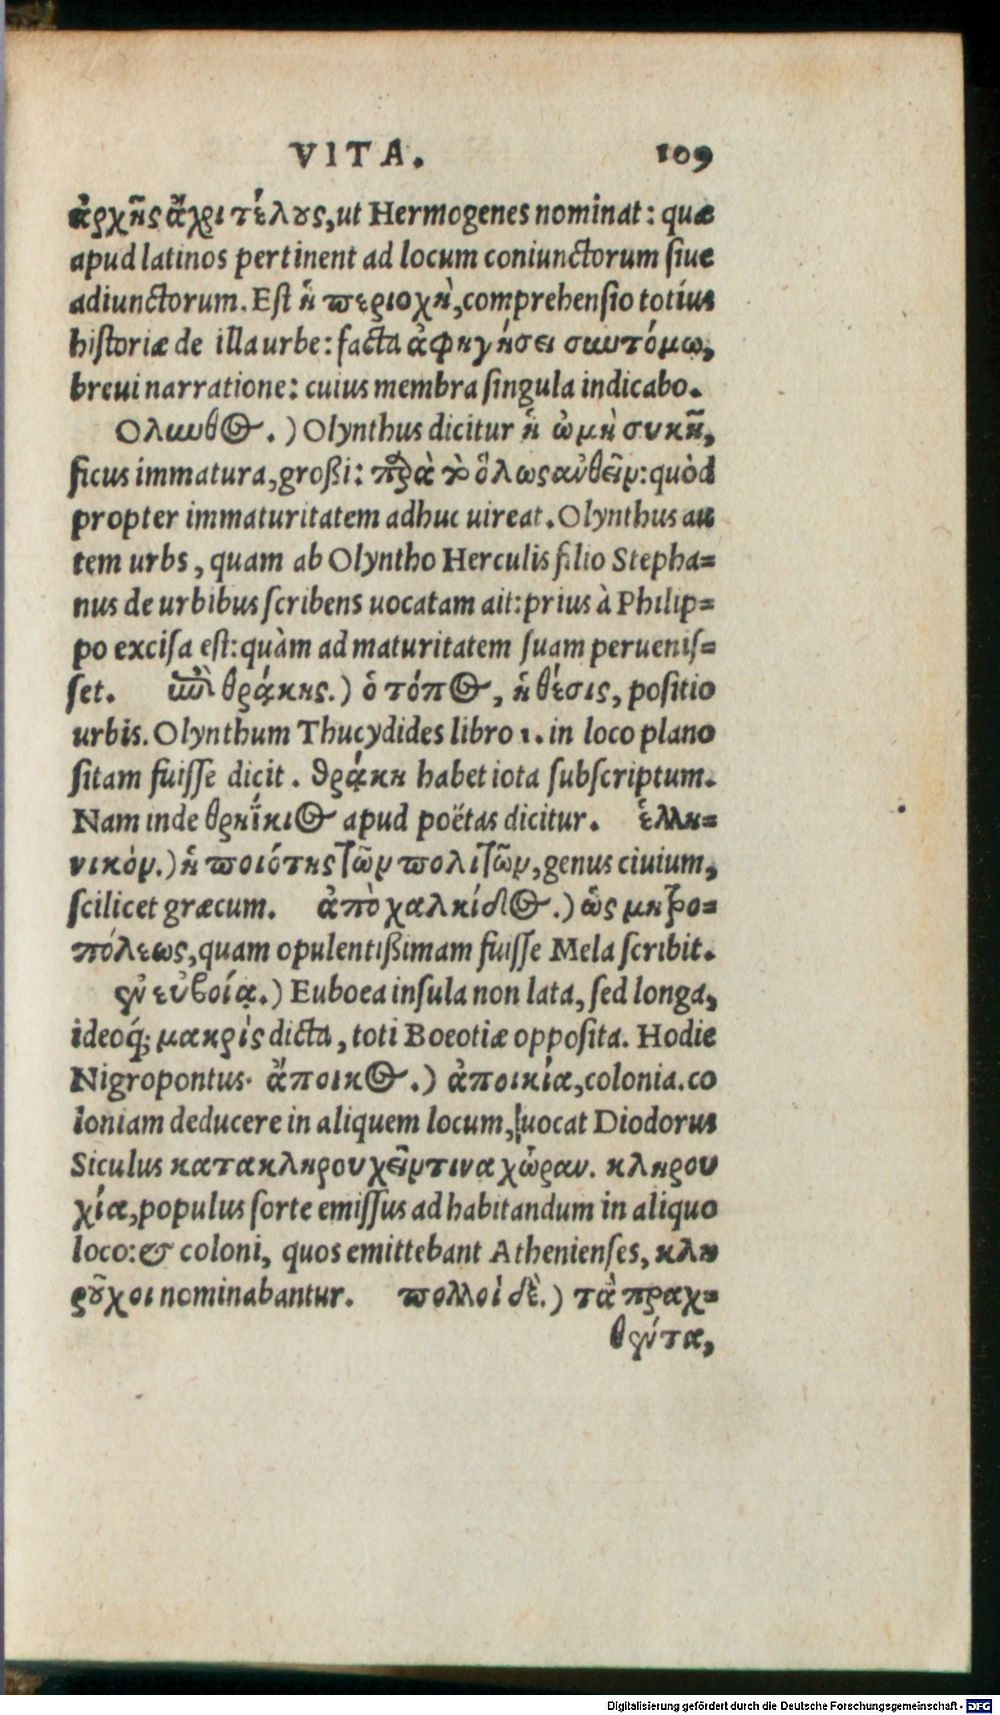 VITA. 109
ἀρχῆς ἄχρι τέλους, ut Hermogenes nominat: quæ
apud latinos pertinent ad locum coniunctorum siue
adiunctorum. Est ἡ περιοχὴ, comprehensio totius
historiæ de illa urbe: facta ἀφηγήσει συντόμω,
breui narratione: cuius membra singula indicabo.
Ολυνθος.) Olynthus dicitur ἡ ὠμὴ συκῆ,
ficus immatura, grossi: παρὰ τὸ ὅλως αὐθεῖν: quòd
propter immaturitatem adhuc uireat. Olynthus au
tem urbs, quam ab Olyntho Herculis filio Stepha=
nus de urbibus scribens uocatam ait: prius à Philip=
po excisa est: quàm ad maturitatem suam peruenis=
set. ἐπὶ θρᾴκης.) ὁ τόπος, ἡ θέσις, positio
urbis. Olynthum Thucydides libro 1. in loco plano
sitam fuisse dicit. θρᾴκη habet iota subscriptum.
Nam inde θρηΐκιος apud poëtas dicitur. ἑλλη=
νικὸν.) ἡ ποιότης τῶν πολιτῶν, genus ciuium,
scilicet græcum. ἀπὸ χαλκίδος.) ὡς μητρο=
πόλεως, quam opulentissimam fuisse Mela scribit.
ἐν εὐβοίᾳ.) Euboea insula non lata, sed longa,
ideoq́; μακρὶς dicta, toti Boeotiæ opposita. Hodie
Nigropontus. ἄποικος.) ἀποικία, colonia. co
loniam deducere in aliquem locum, uocat Diodorus
Siculus κατακληρουχεῖν τινα χώραν. κληρου
χία, populus sorte emissus ad habitandum in aliquo
loco: & coloni, quos emittebant Athenienses, κλη
ροῦχοι nominabantur. πολλοὶ δὲ.) τὰ πραχ=
θέντα,
Digitalisierung gefördert durch die Deutsche Forschungsgemeinschaft - DFG